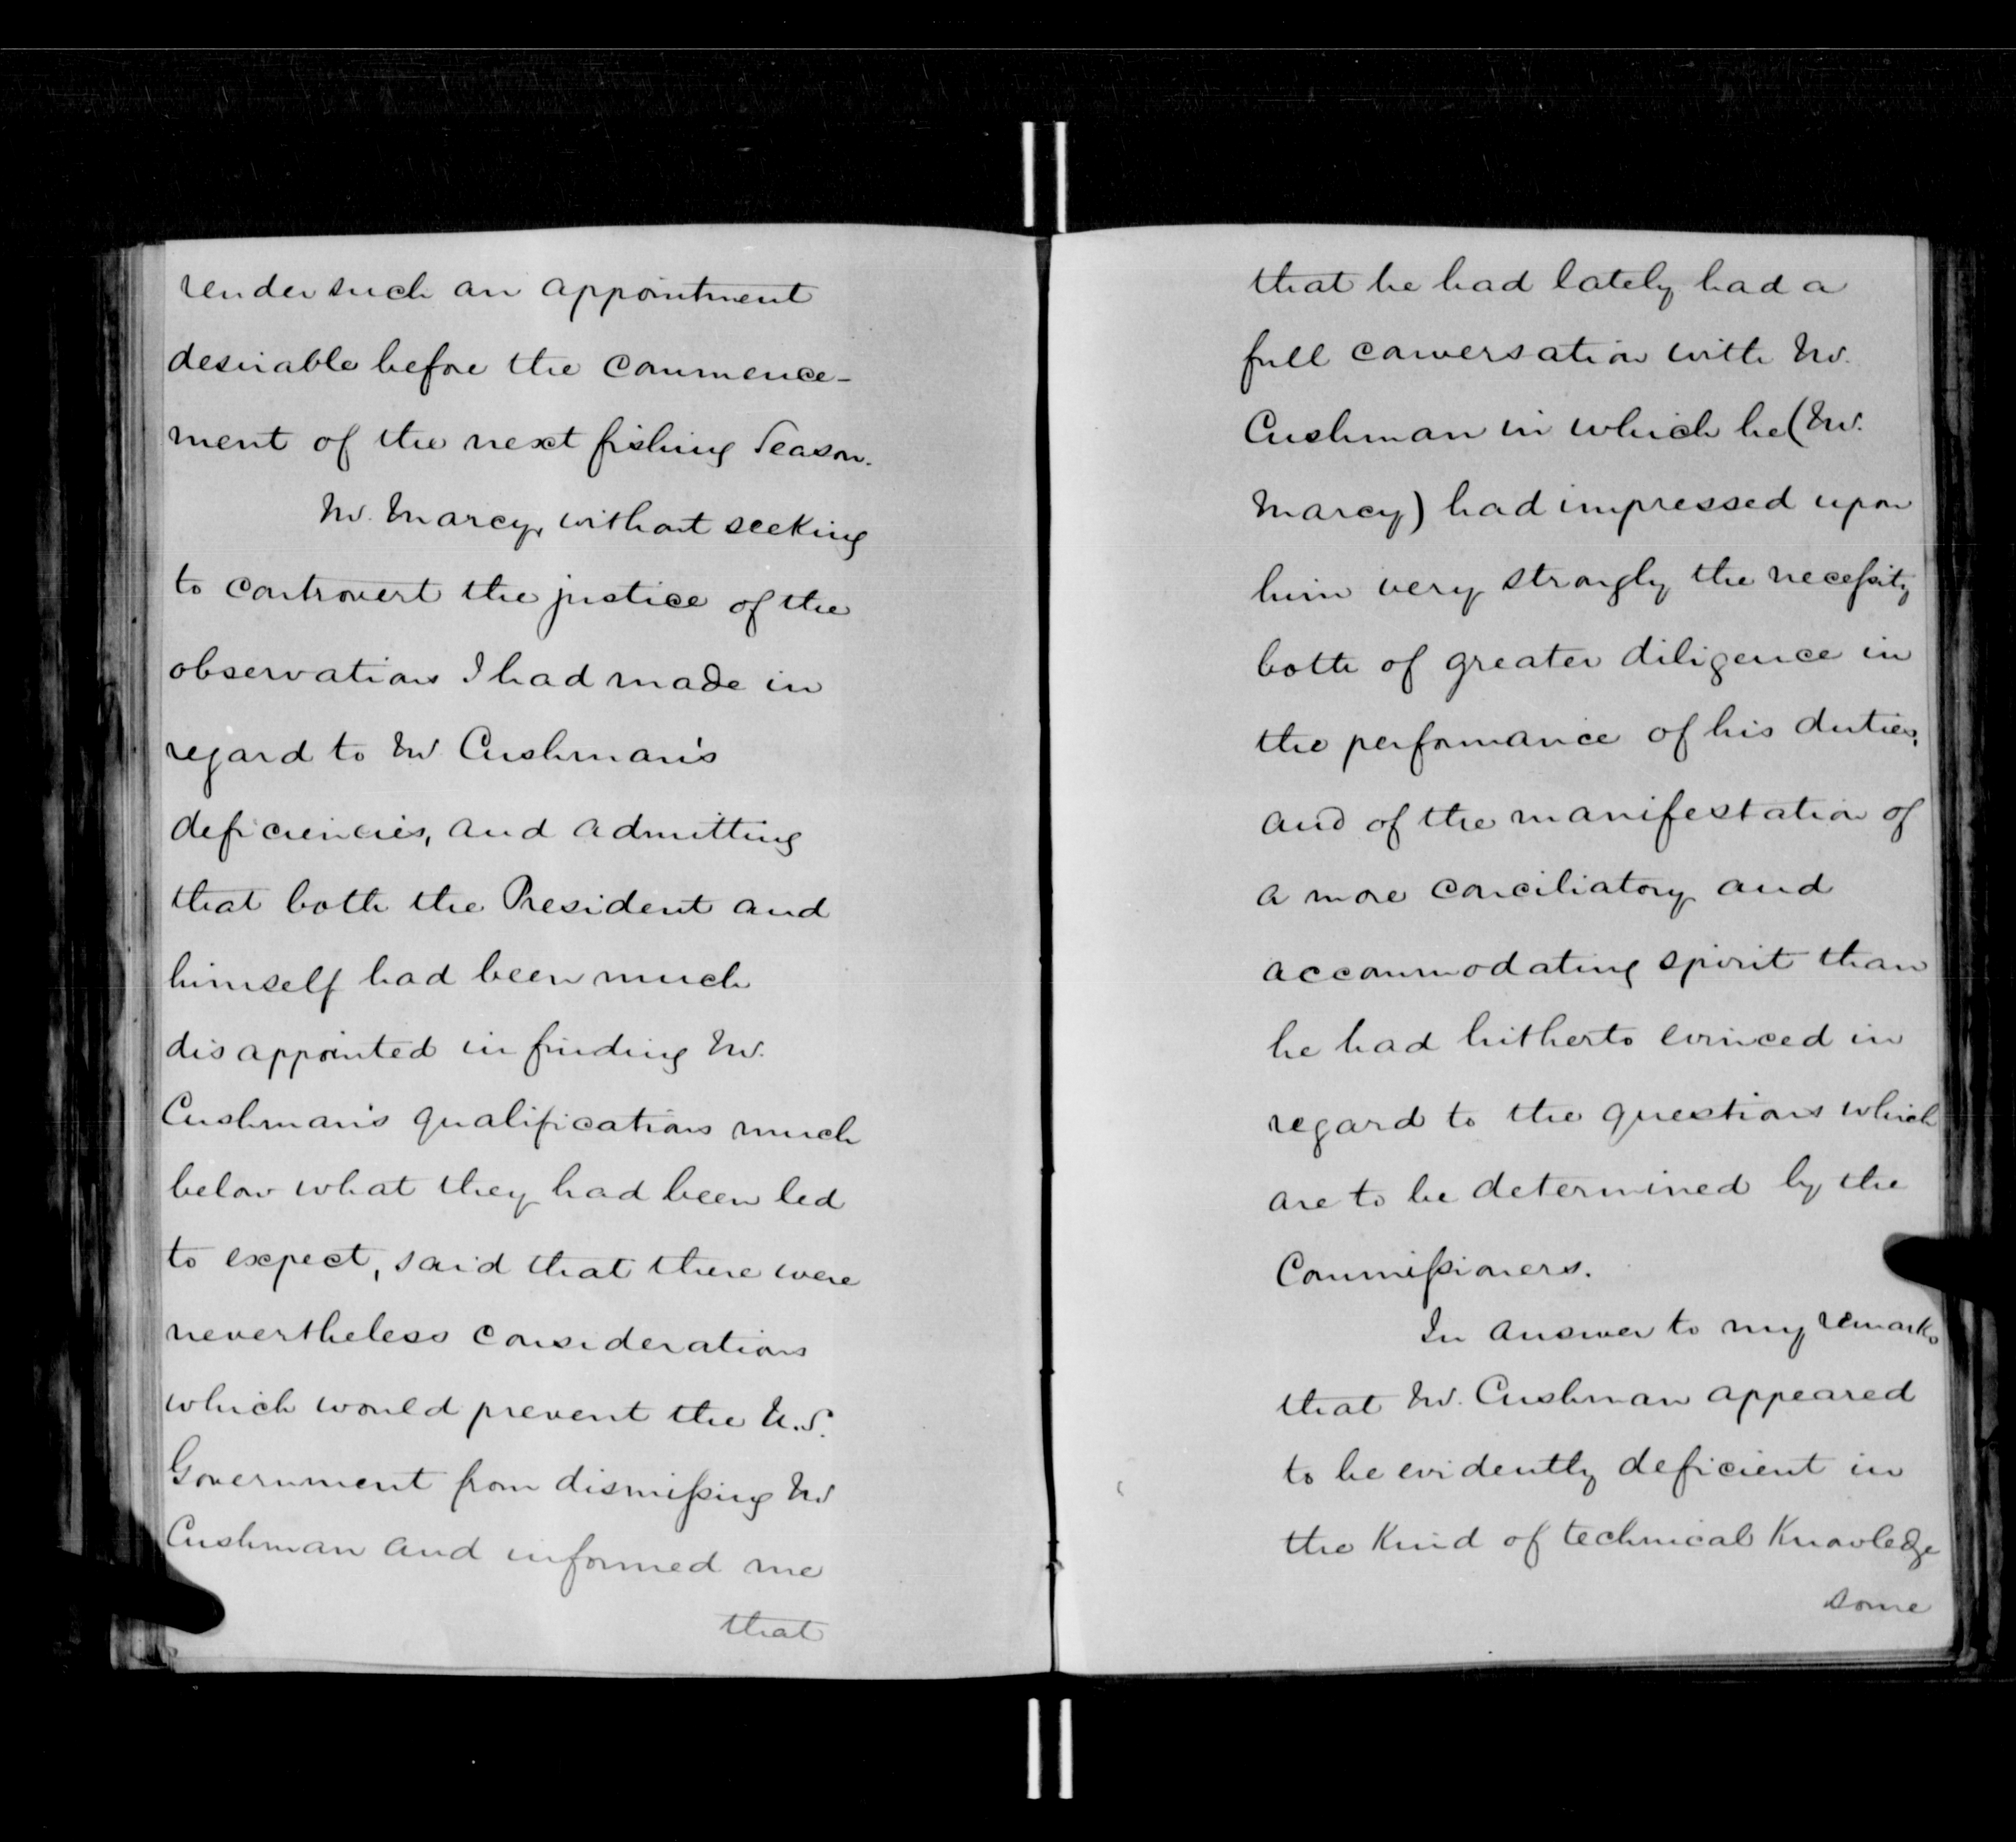 render such an appointment
desirable before the commence-
ment of the next fishing Season.
Mr. Marcy, without seeking
to controvert the justice of the
observations I had made in
regard to Mr Cushman's
deficiencies, and admitting
that both the President and
himself had been much
disappointed in finding Mr.
Cushman's qualifications much
below what they had been led
to expect, said that there were
nevertheless considerations
which would prevent the U.S.
Government from dismissing Mr
Cushman and informed me
that
that he had lately had a
full conversation with Mr.
Cushman in which he (Mr.
Marcy) had impressed upon
him very strongly the necessity
both of greater diligence in
the performance of his duties,
and of the manifestation of
a more conciliatory and
accommodating spirit than
he had hitherto evinced in
regard to the questions which
are to be determined by the
Commissioners.
In answer to my remarks
that Mr. Cushman appeared
to be evidently deficient in
the kind of technical knowledge
some